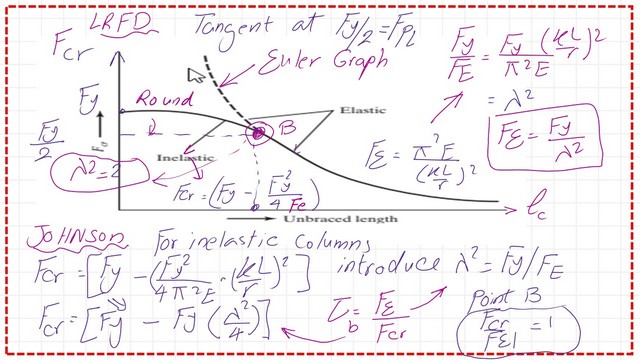 LRFD Tangent at Fy/2 = FPL
Fcr
Euler Graph
Fy/FE = Fy/π²E (KL/r)²
= λ²
FE = Fy/λ²
Fy
Round
B
Elastic
Fy/2
Fa
Inelastic
λ² = 2
FE = π²E/(KL/r)²
Fcr = (Fy - Fy²/4Fe)
lc
Unbraced length
JOHNSON For inelastic Columns
Fcr = [Fy - (Fy²/4π²E · (KL/r)²] introduce λ² = Fy/FE
Fcr = [Fy - Fy (λ²/4)] τb = FE/Fcr
Point B
Fcr/FE = 1